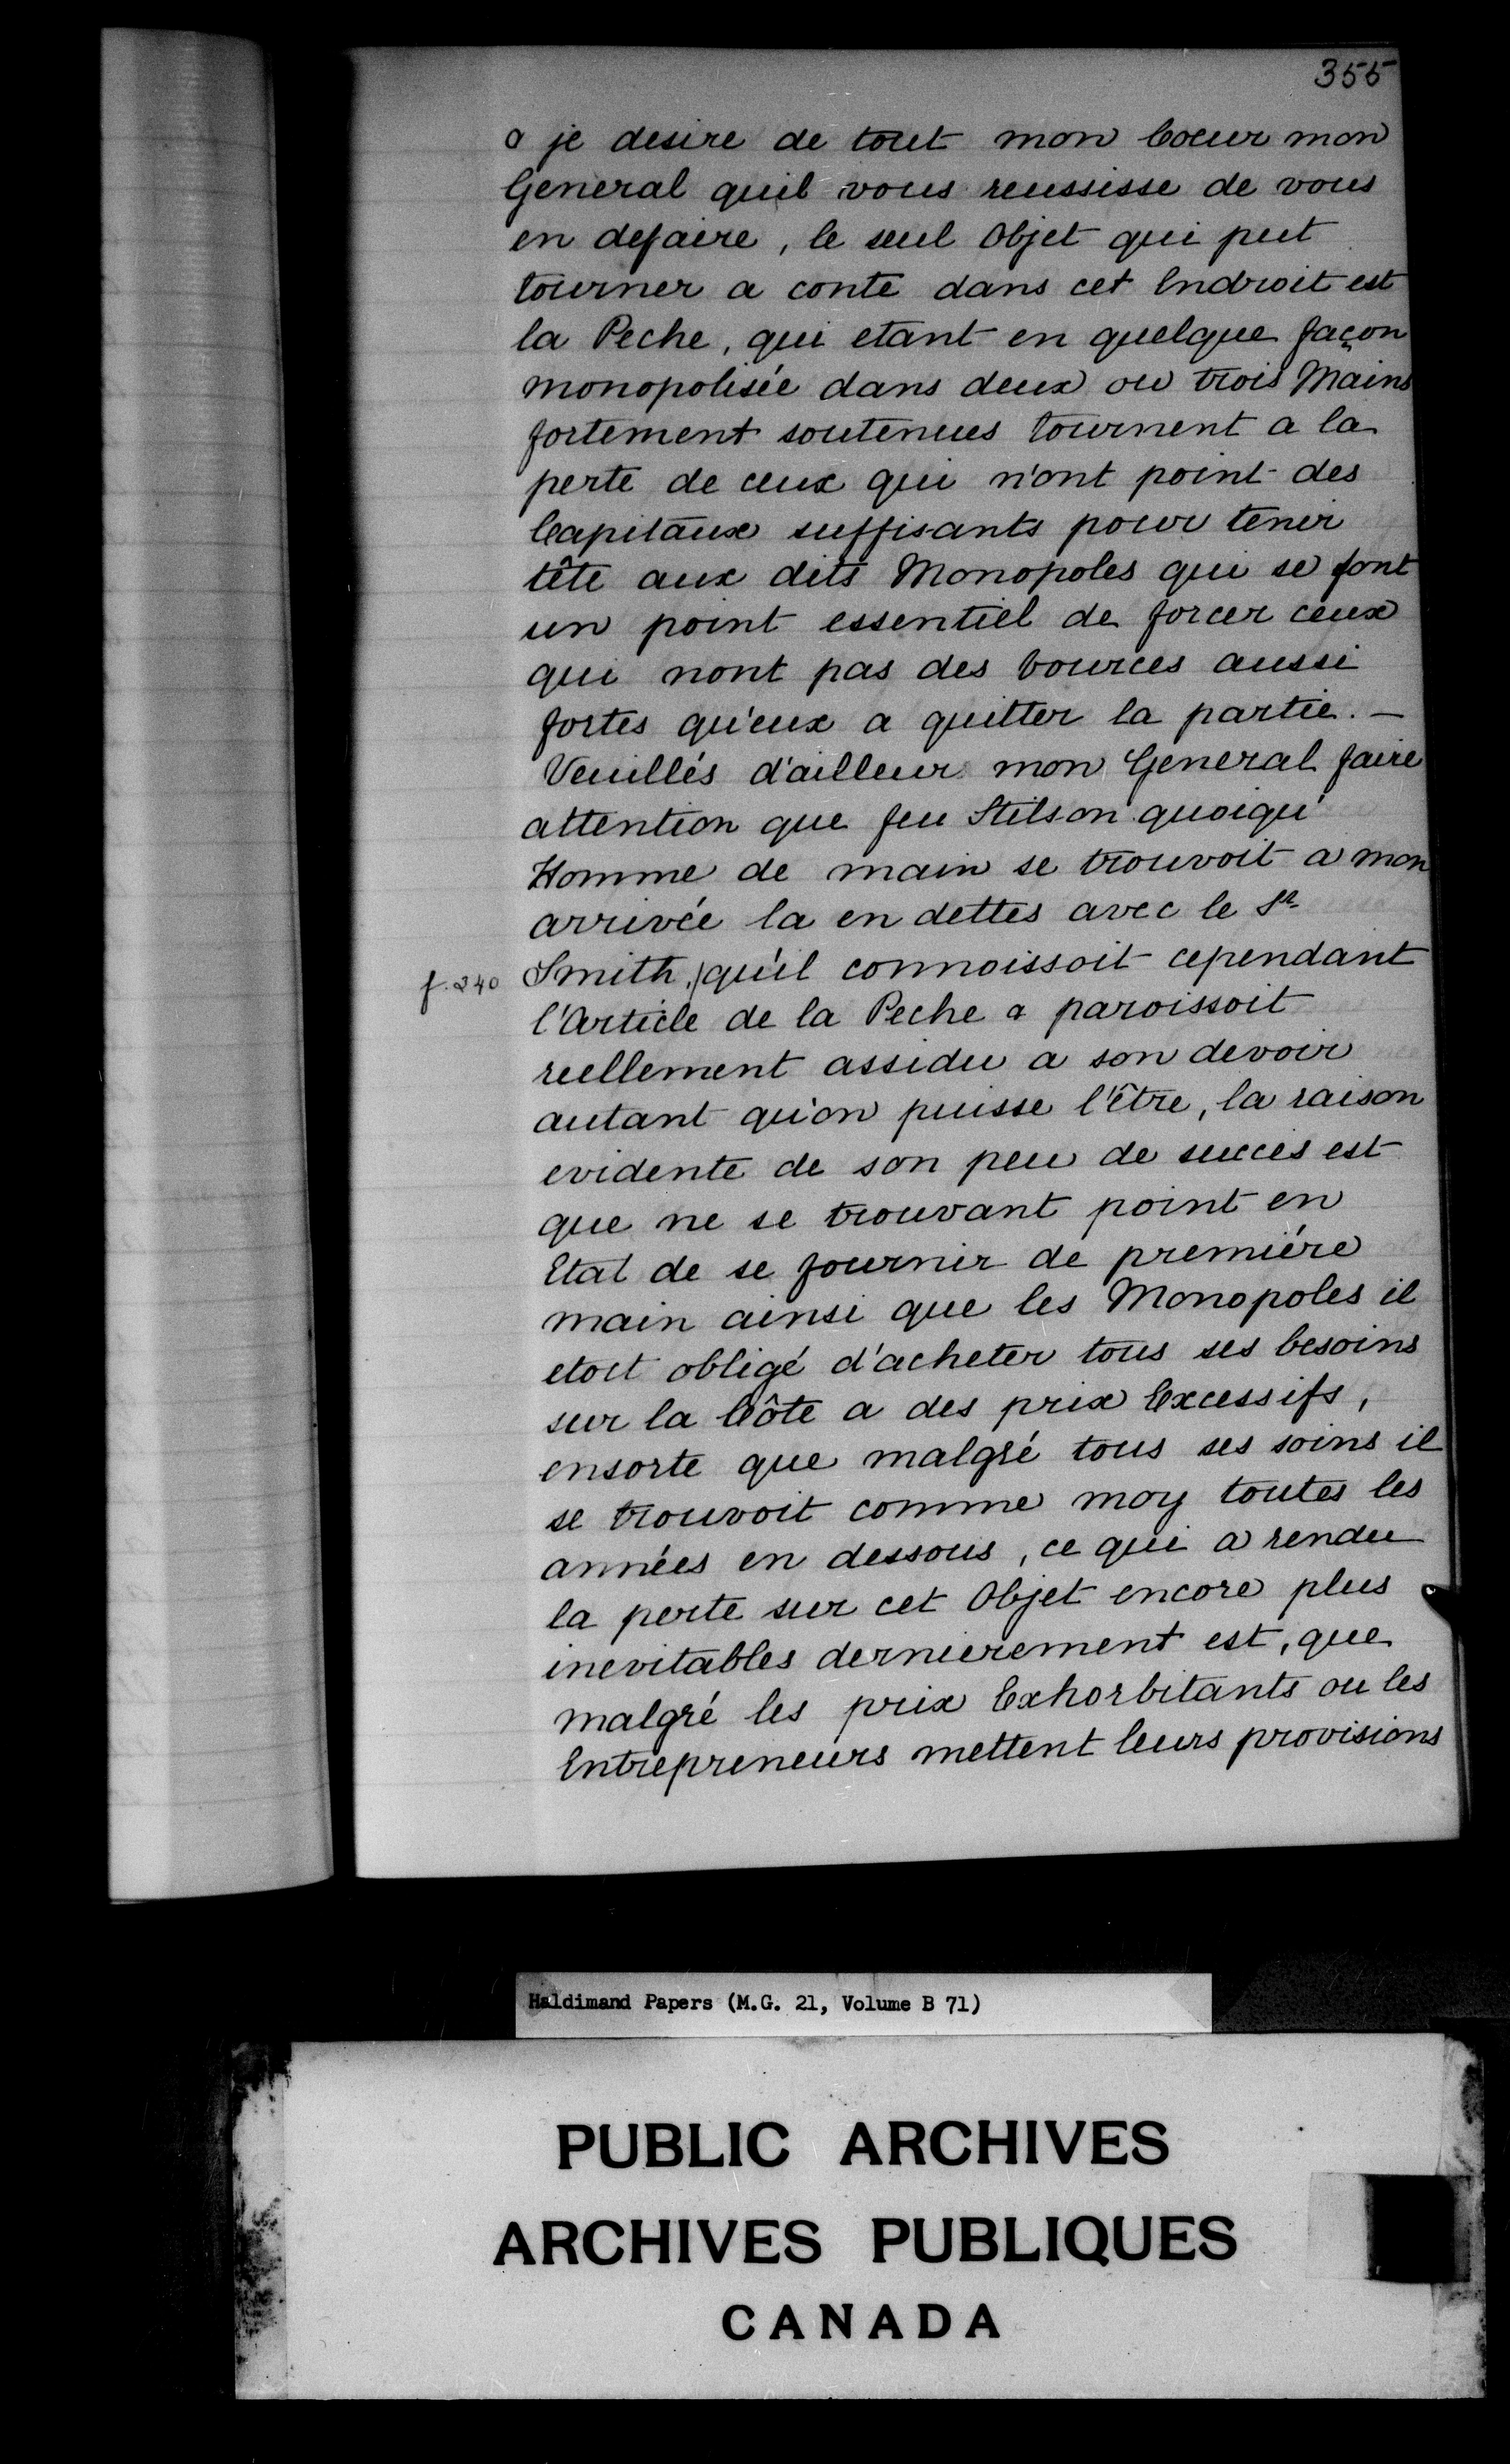 355
& je desire de tout mon Coeur mon
General quil vous reussisse de vous
en defaire, le seul Objet qui put
tourner a conte dans cet Endroit est
la Peche, qui etant en quelque façon
monopolisée dans deux ou trois Mains
fortement soutenues tournent a la
perte de ceux qui n'ont point des
Capitaux suffisants pour tenir
tête aux dits Monopoles qui se font
un point essentiel de forcer ceux
qui nont pas des bources aussi
fortes qu'eux a quitter la partie. —
Veuillés d'ailleur mon General faire
attention que feu Stilson quoiqu'
Homme de main se trouvoit a mon
arrivée la en dettes avec le Sr.
f. 240 Smith, /qu'il connoissoit cependant
l'Article de la Peche & paroissoit
reellement assidu a son devoir
autant qu'on puisse l'être, la raison
evidente de son peu de succés est
que ne se trouvant point en
Etat de se fournir de premiére
main ainsi que les Monopoles il
etoit obligé d'acheter tous ses besoins
sur la Côte a des prix Excessifs,
ensorte que malgré tous ses soins il
se trouvoit comme moy toutes les
années en dessous, ce qui a rendu
la perte sur cet Objet encore plus
inevitables dernierement est, que
malgré les prix Exhorbitants ou les
Entrepreneurs mettent leurs provisions
Haldimand Papers (M.G. 21, Volume B 71)
PUBLIC ARCHIVES
ARCHIVES PUBLIQUES
CANADA